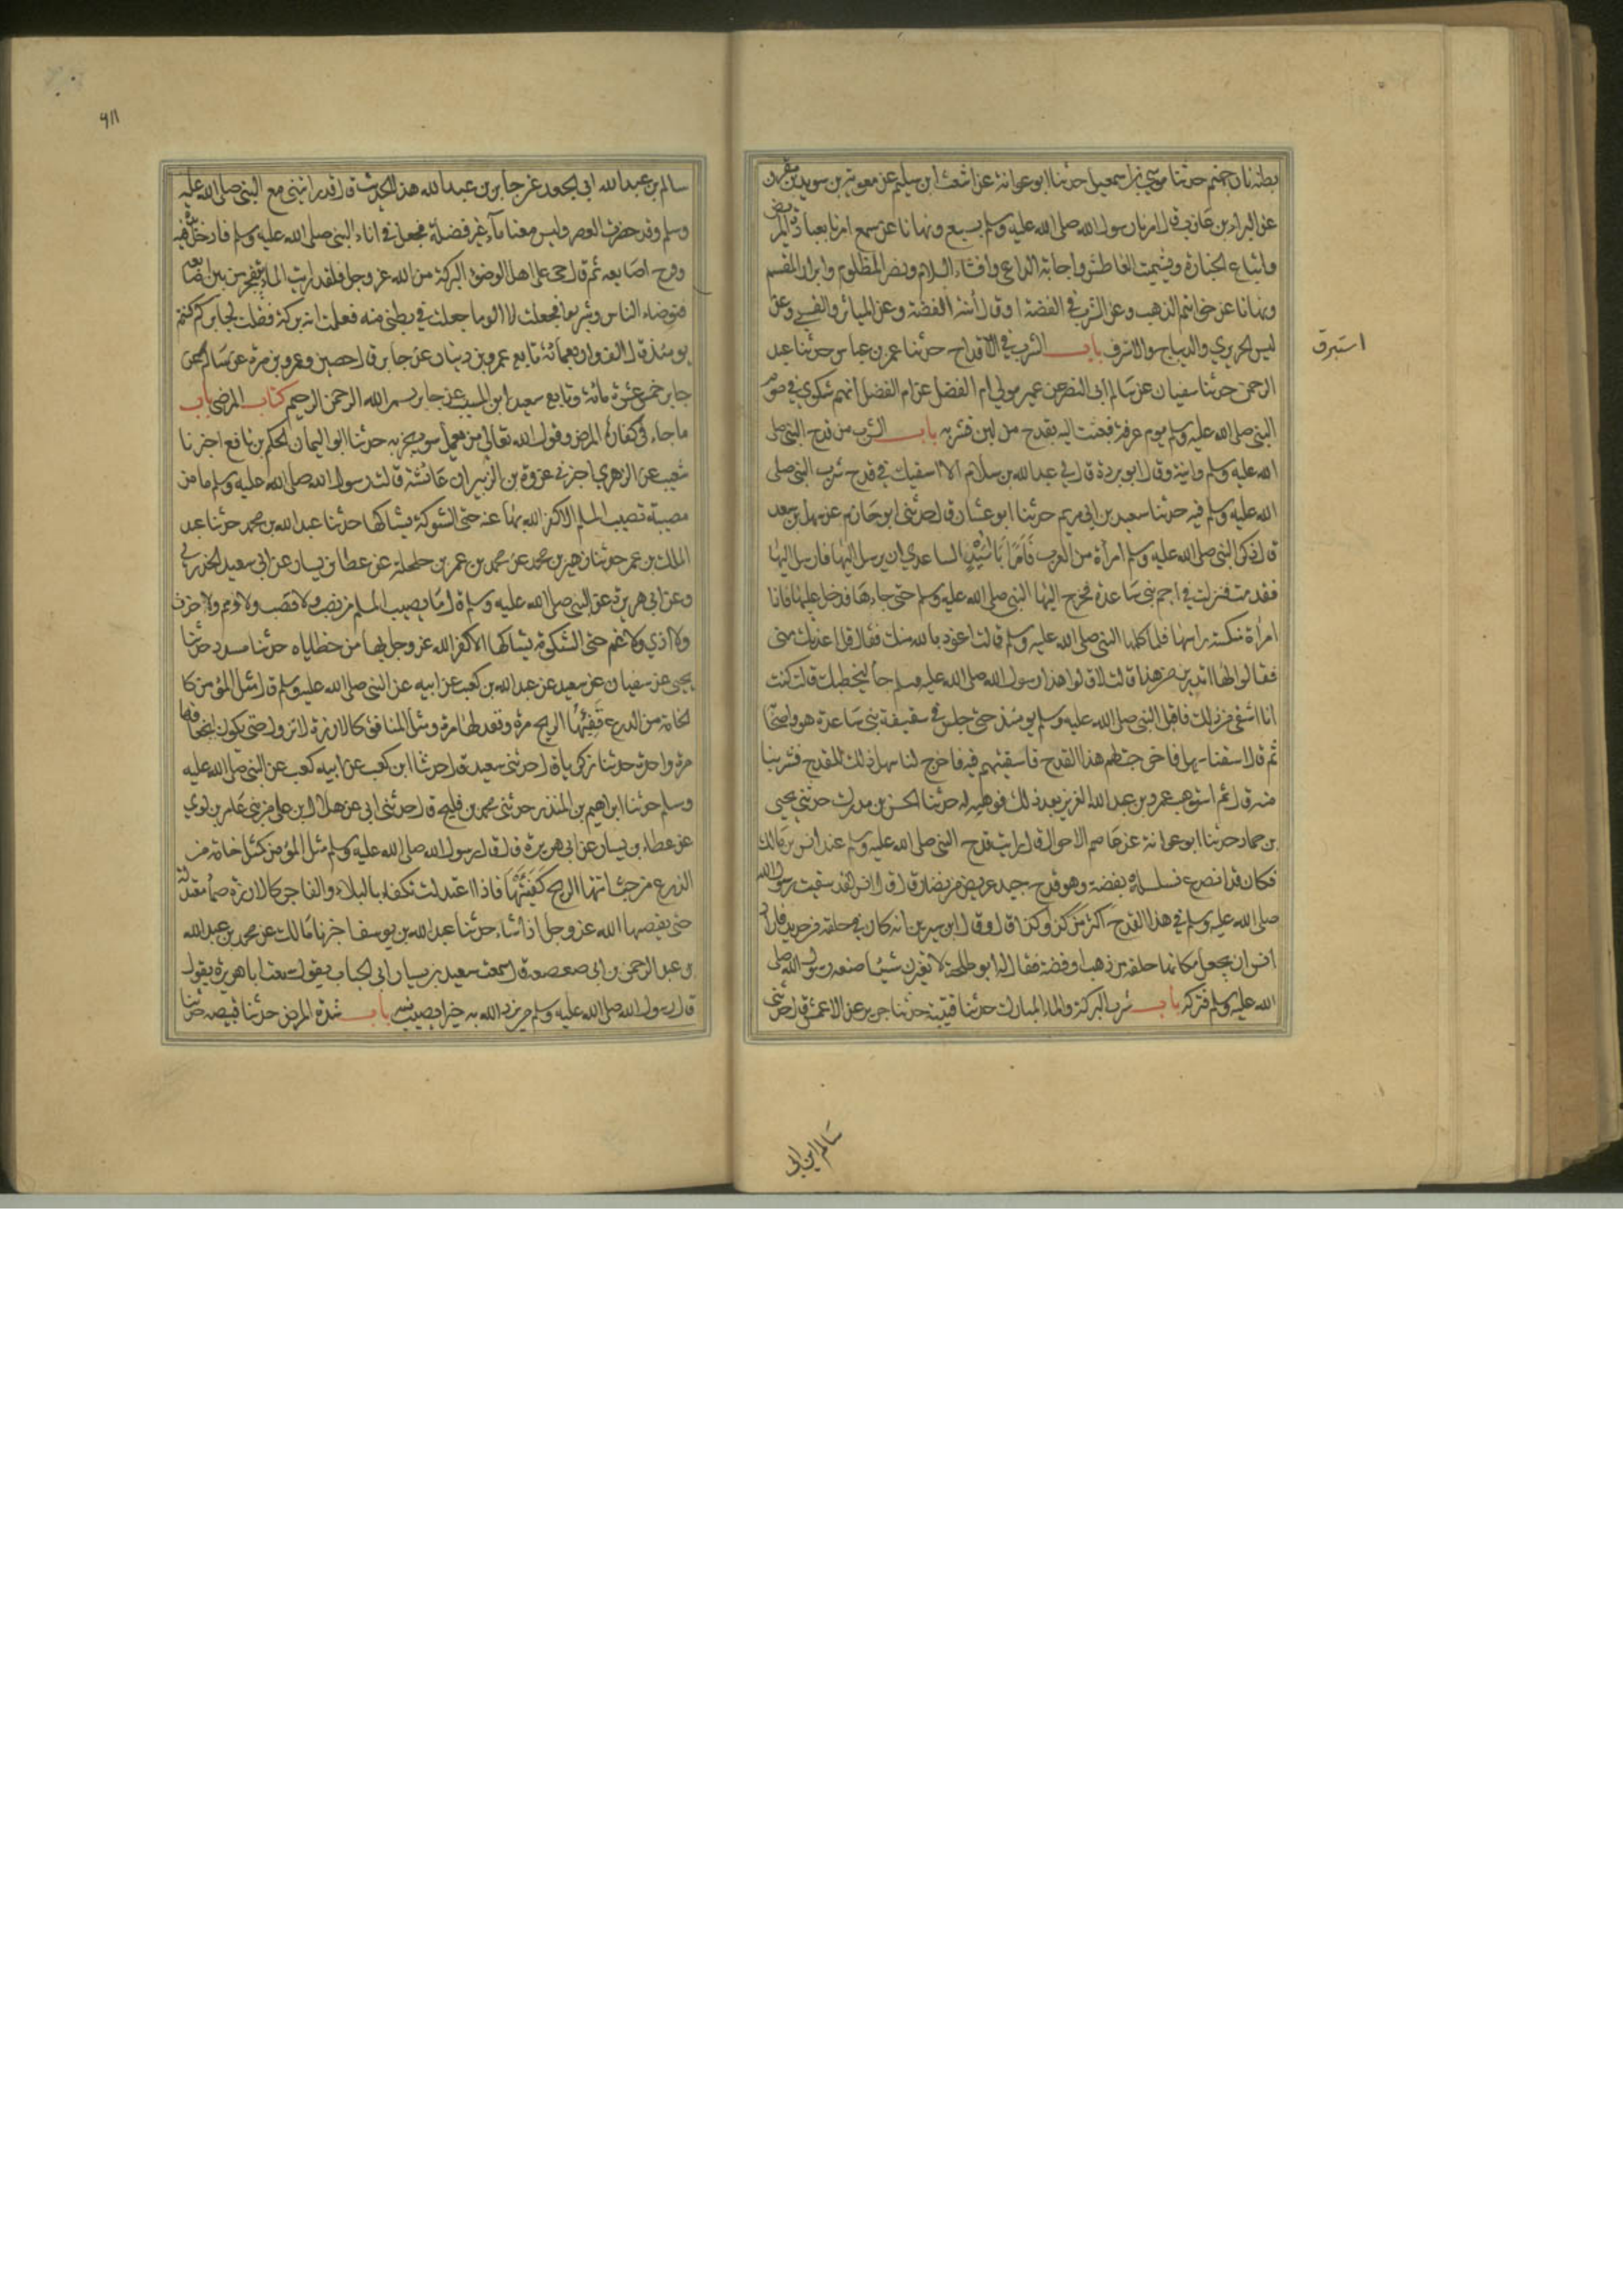 بطنه نار جهنم حدثنا موسي بن اسمعيل حدثنا ابو عوانة عن اشعث ابن سليم عن معوية بن سويد بن مقرن
عن البراء بن عازب قال امرنا رسول الله صلى الله عليه وسلم بسبع ونهانا عن سبع امرنا بعيادة المريض
واتباع الجنازة وتشميت العاطش واجابة الداعي وافشاء السلام ونصر المظلوم وابرار المقسم
ونهانا عن خواتيم الذهب وعن الشرب في الفضة او قال أنية الفضة وعن المياثر والقسي وعن
لبس الحريري والديباج والاسترف باب الشرب في الاقداح حدثنا عمر بن عباس حدثنا عبد
استبرق
الرحمن حدثنا سفيان عن سالم ابي النضر عن عمير مولي ام الفضل عن ام الفضل انهم شكوي في صوم
النبي صلى الله عليه وسلم يوم عرفة فبعثت اليه بقدح من لبن فشربه باب الشرب من قدح النبي صلى
الله عليه وسلم وانية وقال ابو بردة قال لي عبد الله بن سلام الا اسقيك في قدح شرب النبي صلى
الله عليه وسلم فيه حدثنا سعيد بن ابي مريم حدثنا ابو غسان قال حدثني ابو حازم عن سهل بن سعد
قال ذكر النبي صلى الله عليه وسلم امرأة من العرب فأمر أبا أسيد الساعدي ان يرسل اليها فارسل اليها
فقدمت فنزلت في اجم بني ساعدة فخرج اليها النبي صلى الله عليه وسلم حتى جاءها فدخل عليها فاذا
امرأة منكسة راسها فلما كلمها النبي صلى الله عليه وسلم قالت اعوذ بالله منك فقال قد اعذتك مني
فقالوا لها اتدرين من هذا قالت لا قالوا هذا رسول الله صلى الله عليه وسلم جأ ليخطبك قالت كنت
انا اشقي من ذلك فاقبل النبي صلى الله عليه وسلم يومئذ حتى جلس في سقيفة بني ساعدة هو واصحابه
ثم قال اسقنا يا سهل فاخرجت لهم هذا القدح فاسقيتهم فيه فاخرج لنا سهل ذلك القدح فشربنا
منه قال ثم استوهب عمرو بن عبد الله العزيز بعد ذلك فوهبه له حدثنا الحسن بن مدرك حدثني يحيى
بن حماد حدثنا ابو عوانة عن عاصم الاحوال قال رايت قدح النبي صلى الله عليه وسلم عند انس بن مالك
فكان قد انصدع فسلسله بفضة وهو قدح جيد عريض من نضار قال قال انس لقد سقيت رسول الله
صلى الله عليه وسلم في هذا القدح اكثر من كذا وكذا قال وقال ابن سيرين انه كان فيه حلقة من حديد فاراد
انس ان يجعل مكانها حلقة من ذهب او فضة فقال له ابو طلحة لا تغيرن شيئا صنعه رسول الله صلى
الله عليه وسلم فتركه باب شرب البركة والماء المبارك حدثنا قتيبة حدثنا جرير عن الاعمش قال حدثني
سالم ابن ابي
٩١١
سالم بن عبد الله ابي الجعد عن جابر بن عبد الله هذا الحديث قال قد رايتني مع النبي صلى الله عليه
وسلم وقد حضرت العصر وليس معنا مآء غير فضلة فجعل في اناء النبي صلى الله عليه وسلم فادخل يده فيه
وفرج اصابعه ثم قال حي على اهل الوضوء البركة من الله عز وجل فلقد رايت الماء يتفجر من بين اصابعه
فتوضاء الناس وشربوا فجعلت لا الو ما جعلت في بطني منه فعلمت انه بركة فقلت لجابر كم كنتم
يومئذ قال الف واربعمائة تابع عمرو بن دينار عن جابر قال حصين وعمرو بن مرة عن سالم عن
جابر خمس عشرة مائة وتابع سعيد ابن المسيب عن جابر بسم الله الرحمن الرحيم كتاب المرضى باب
ما جاء في كفارة المرض وقول الله تعالي من يعمل سوء يجز به حدثنا ابو اليمان الحكم بن نافع اخبرنا
شعيب عن الزهري اخبرني عروة بن الزبير ان عائشة قالت قال رسول الله صلى الله عليه وسلم ما من
مصيبة تصيب المسلم الا كفر الله بها عنه حتى الشوكة يشاكها حدثنا عبد الله بن محمد حدثنا عبد
الملك بن عمر حدثنا زهير بن محمد عن محمد بن عمر بن حلحلة عن عطا بن يسار عن ابي سعيد الخدري
وعن ابي هريرة عن النبي صلى الله عليه وسلم قال ما يصيب المسلم من نصب ولا وصب ولا هم ولا حزن
ولا اذي ولا غم حتى الشكوة يشاكها الا كفر الله عز وجل بها من خطاياه حدثنا مسدد حدثنا
يحيى عن سفيان عن سعيد عن عبد الله بن كعب عن ابيه عن النبي صلى الله عليه وسلم قال مثل المؤمن كا
لخامة من الزرع تفيئها الريح مرة وتعدلها مرة ومثل المنافق كالارزة لا تزول حتى يكون انجعافها
مرة واحدة حدثنا زكرياء قال حدثني سعيد قال حدثنا ابن كعب عن ابيه كعب عن النبي صلى الله عليه
وسلم حدثنا ابراهيم بن المنذر حدثني محمد بن فليح قال حدثني ابي عن هلال ابن علي من بني عامر بن لوي
عن عطاء بن يسار عن ابي هريرة قال قال رسول الله صلى الله عليه وسلم مثل المؤمن كمثل خامة من
الزرع من حيث اتتها الريح كفيتها فاذا اعتدلت تكفاء بالبلاء والفاجر كالارزة صما معتدلة
حتى يقصمها الله عز وجل اذا شاء حدثنا عبد الله بن يوسف اخبرنا مالك عن محمد بن عبد الله
بن عبد الرحمن بن ابي صعصعة قال سمعت سعيد بن يسار ابي الحباب يقول سمعت ابا هريرة يقول
قال رسول الله صلى الله عليه وسلم من يرد الله به خيرا يصب منه باب شدة المرض حدثنا قبيصه حدثنا